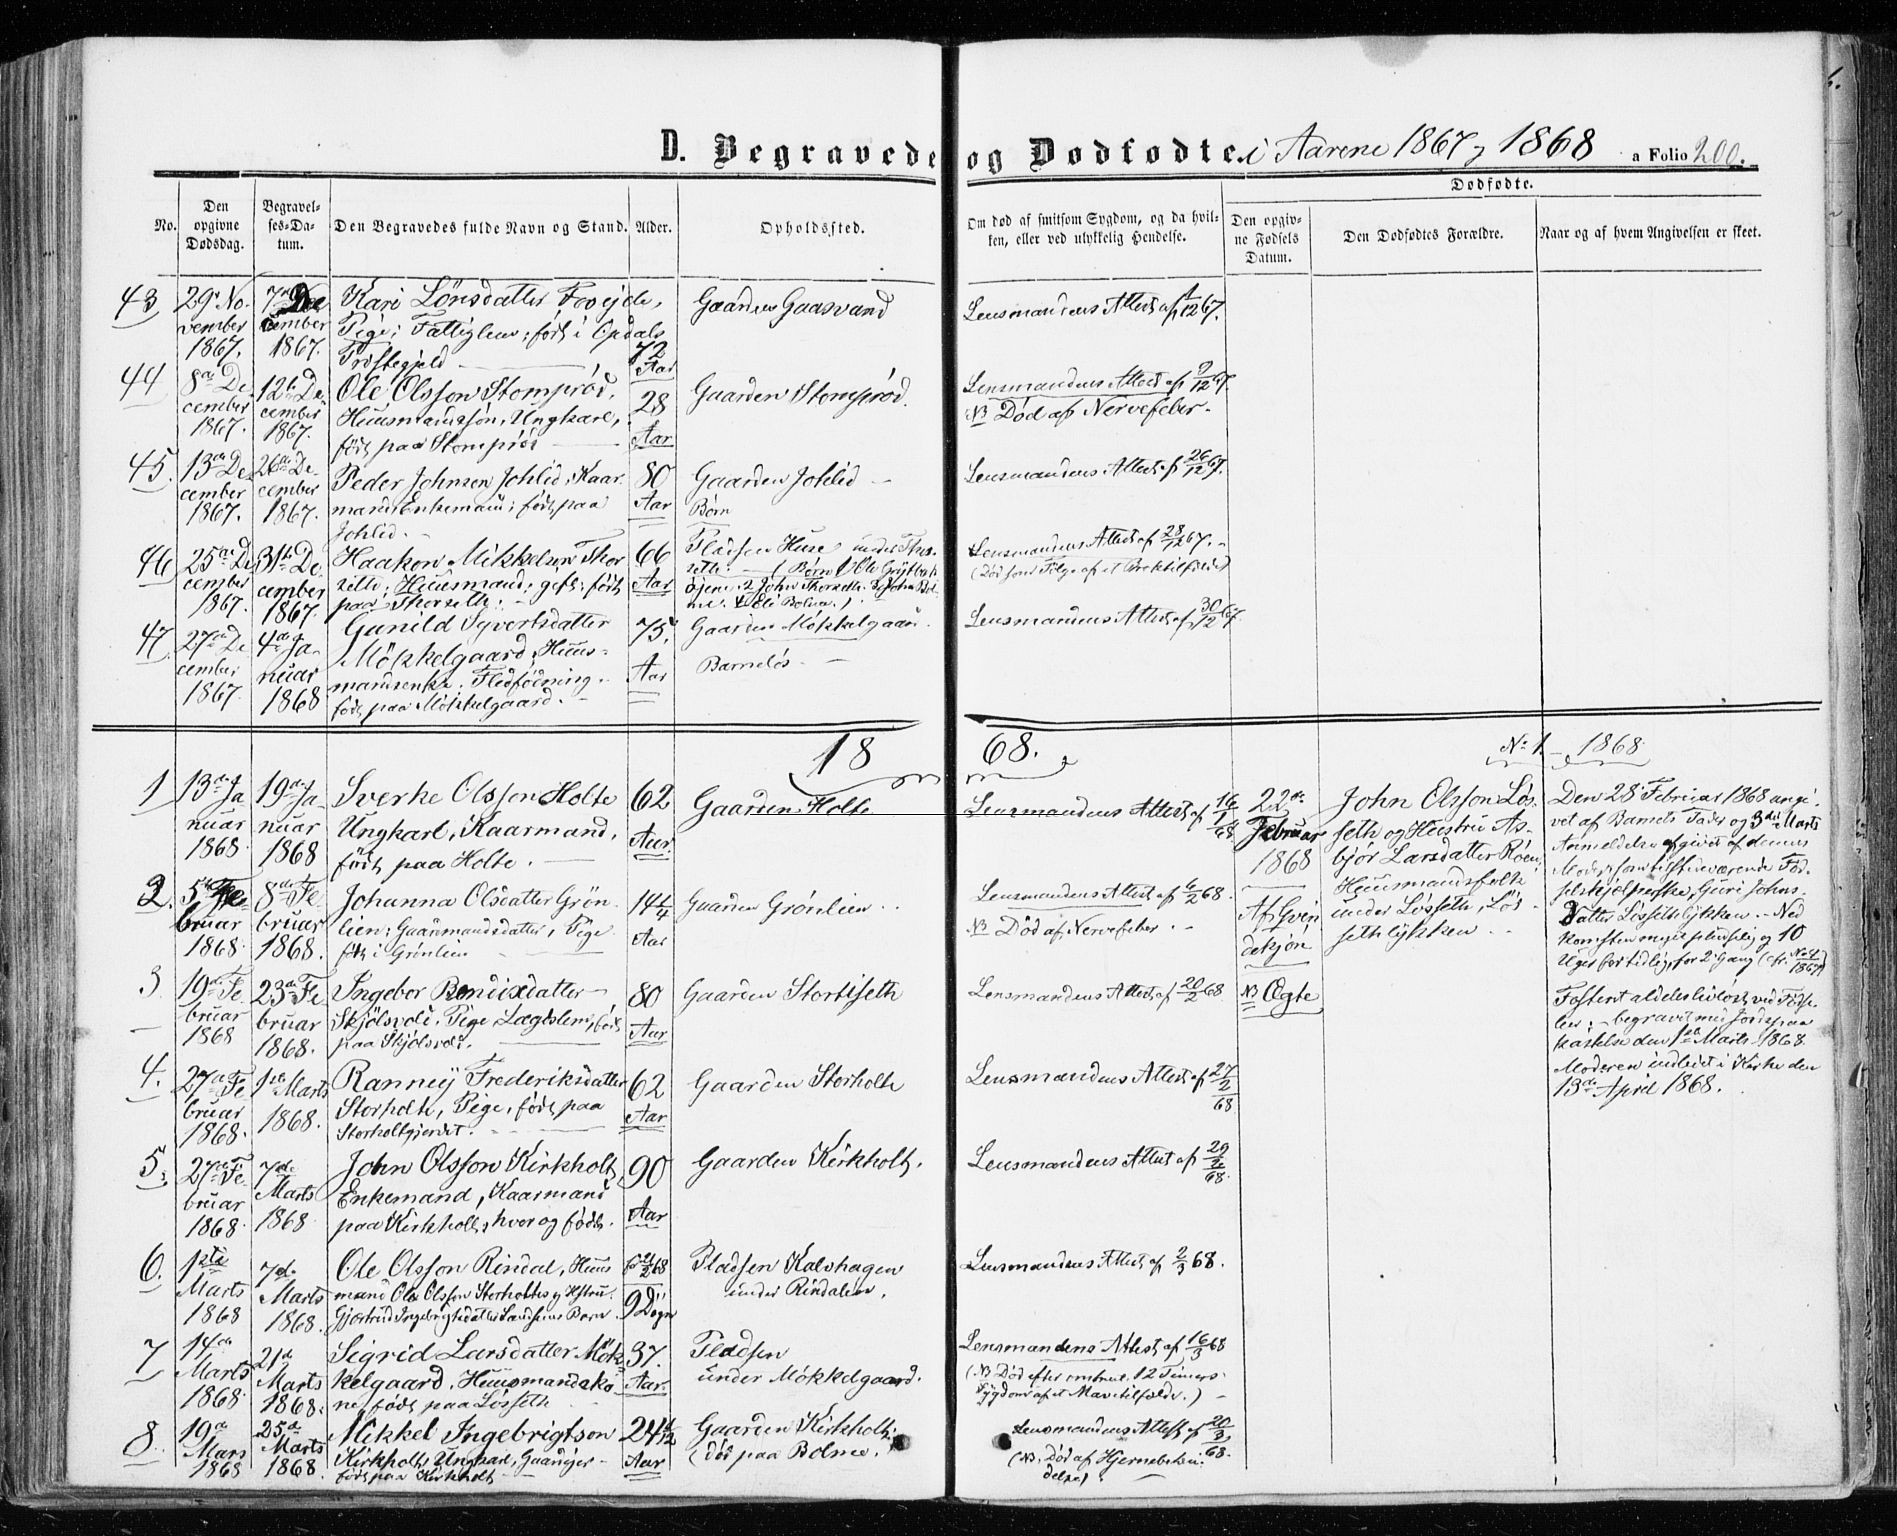 D. Begravede og Dødfødte i Aarene 1867 og 1868 a Folio 200.
Dødfødte.
No.
Den opgivne Dødsdag.
Begravelses-Datum.
Den Begravedes fulde Navn og Stand.
Alder.
Opholdssted.
Om død af smitsom Sygdom, og da hvilken, eller ved ulykkelig Hendelse.
Den opgivne Fødsels Datum.
Den Dødfødtes Forældre.
Naar og af hvem Angivelsen er skeet.
43
29de November 1867.
7de December 1867.
Kari Lönsdatter
Pige; Fattiglem; født i Opdals
Præstegjeld
72 Aar
Gaarden Gaasvand
Lensmandens Attest af 1/12 67.
44
8de December 1867.
12te December 1867.
Ole Olsson Stomprød,
Huusmandssøn, Ungkarl,
født paa Stomprød
28 Aar
Gaarden Stomprød.
Lensmandens Attest af 9/12 67
NB Død af Nervefeber.
45.
13de December 1867.
26de December 1867.
Peder Johnsen Johlid, Kaar
mand, Enkemand; født paa
Johlid.
80 Aar
Gaarden Johlid
Børn
Lensmandens Attest af 26/12 67.
46
25de December 1867.
31te December 1867.
Haakon Mikkelsen Thor
sethe; Huusmand; gift; født
paa Thorsethe.
66 Aar
Pladsen Huse under Thor
sethe. (Børn 1 Ole
2 John Thorsethe. 3 John Bol
me. 4 Eli Bolme.)
Lensmandens Attest af 28/12 67.
(Død som Følge af et Broktilfælde)
47
27de December 1867.
4de Januar 1868
Gunild Syvertsdatter
Mökkelgaard, Huus-
mandsenke. Fledfødning.
født paa Mökkelgaard.
75. Aar
Gaarden Mökkelgaard.
Barnløs.
Lensmandens Attest af 30/12 67.
1868.
No 1. 1868.
1
13de Januar 1868
19de Januar 1868
Sverke Olsson Holte
Ungkarl, Kaarmand,
født paa Holte.
62 Aar.
Gaarden Holte
Lensmandens Attest af 16/1 68
22de Februar 1868
NB Ægte
John Olsson Løs
seth og Hustru As-
bjør Larsdatter Röen
Huusmandsfolk
under Løsseth, Løs
sethlykken.
Den 28 Februar 1868 angi-
vet af Barnets Fader og 3die Marts
Anmeldelse afgivet af dennes
Moder som tilstedeværende Fød
selshjelperske, Guri Johns-
datter Løssethlykken. Ned
komsten meget pludselig og 10
Uger for tidlig, for 2 Gang (cfr. No 4 1867)
Fosteret aldeles livløst ved Fødse
len; begravet med Jordspaa
kastelse den 1ste Marts 1868.
Moderen indledet i Kirke den
13de April 1868.
2.
5te Februar 1868
8de Februar 1868.
Johanna Olsdatter Grön-
lien; Gaardmandsdatter, Pige
født i Grønlien
14 1/4 Aar
Gaarden Grönlien
Lensmandens Attest af 6/2 68.
NB Død af Nervefeber.
3
19de Februar 1868
23de Februar 1868.
Ingebor Bendixdatter
Skjölsvold, Pige Lægdslem, født
paa Skjölsvold.
80 Aar
Gaarden Stortiseth
Lensmandens Attest af 20/2 68.
4.
27de Februar 1868.
1ste Marts 1868.
Ranney Frederiksdatter
Storholte, Pige, født paa
Storholtgjerdet.
62 Aar
Gaarden Storholte
Lensmandens Attest af 27/2 68
5.
27de Februar 1868.
7de Marts 1868
John Olsson Kirkholt,
Enkemand, Kaarmand
paa Kirkholt, hvor og født.
90 Aar
Gaarden Kirkholt.
Lensmandens Attest af 29/2 68.
6.
1ste Marts 1868
7de Marts 1868.
Ole Olsson Rindal, Huus
mand Ole Olsson Storholtes og Hstru
Gjertrud Ingebrigtsdatter Barn
9 Døgn
Pladsen Kalvhagen
under Rindalen.
Lensmandens Attest af 2/3 68.
7
14de Marts 1868
21de Marts 1868.
Sigrid Larsdatter Mök-
kelgaard, Huusmandsko
ne, født paa Løsseth
37. Aar.
Pladsen
under Mökkelgaard.
Lensmandens Attest af 16/3 68
(NB Død efter omtrent 12 Timers
Sygdom af et Mavetilfælde.)
8.
19de Mars 1868
25de Marts 1868.
Mikkel Ingebrigtson
Kirkholt, Ungkarl,
født paa Kirkholt
24 Aar
Gaarden Kirkholt
(død paa Bolme.)
Lensmandens Attest af 20/3 68.
(NB. Død af Hjernebetæn-
delse)